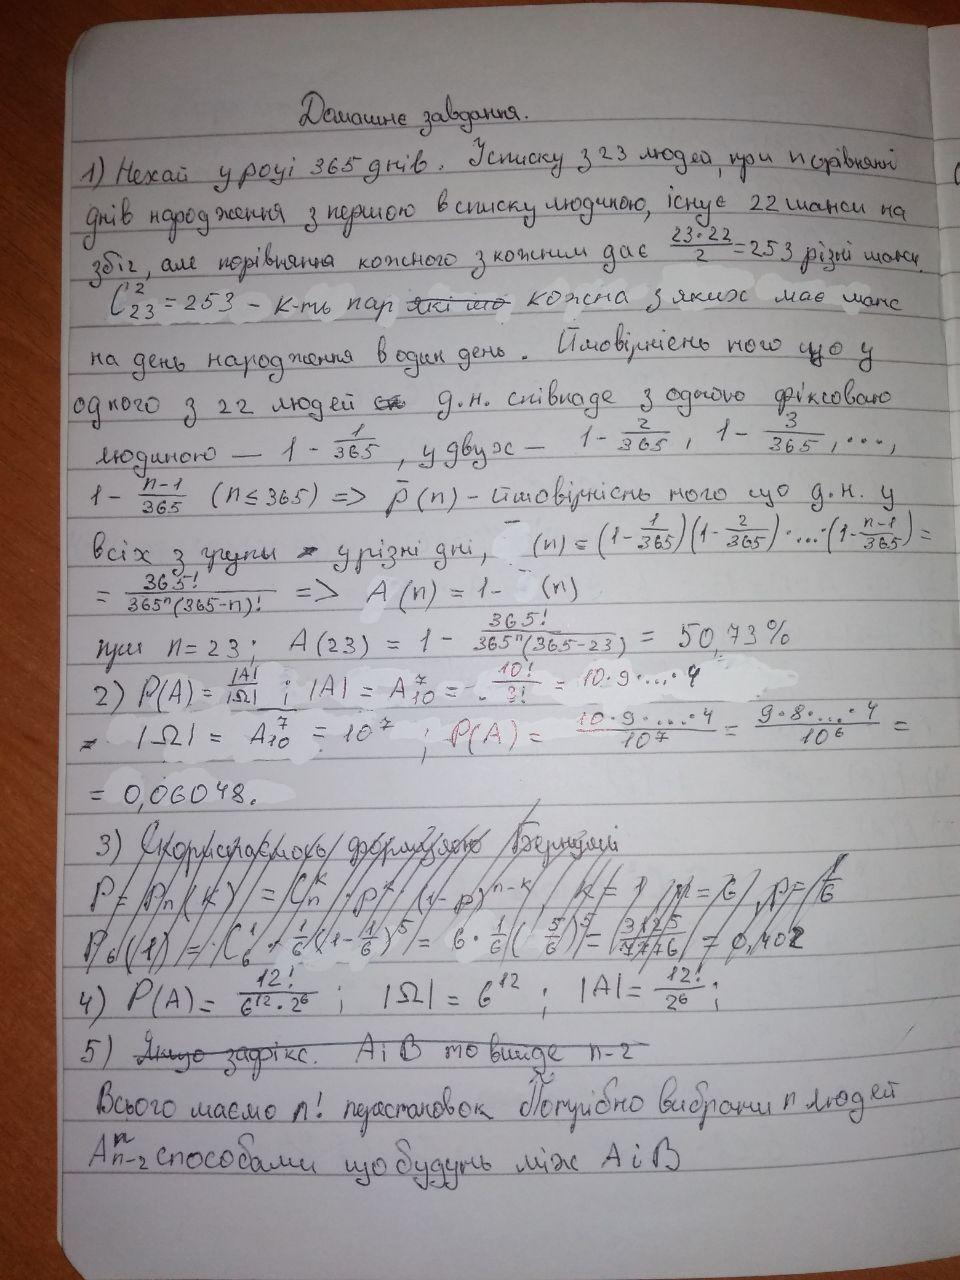 Домашнє завдання.
1) Нехай у році 365 днів. У списку з 23 людей, при порівнянні
днів народження з першою в списку людиною, існує 22 шанси на
збіг, але порівняння кожного з кожним дає 23·22/2 = 253 різні шанси.
C²₂₃ = 253 – к-ть пар які що кожна з яких має шанс
на день народження в один день. Ймовірність того що у
одного з 22 людей д.н. співпаде з одною фіксованою
людиною — 1 - 1/365, у двух — 1 - 2/365, 1 - 3/365, ...,
1 - n-1/365 (n ≤ 365) => p̄(n) - ймовірність того що д.н. у
всіх з групи у різні дні, (n) = (1-1/365)(1-2/365)·...·(1-n-1/365) =
= 365!/365ⁿ(365-n)! => A(n) = 1- (n)
при n = 23; A(23) = 1 - 365!/365ⁿ(365-23) = 50,73%
2) P(A) = |A|/|Ω| ; |A| = A⁷₁₀ = 10!/3! = 10·9·...·4
|Ω| = A⁷₁₀ = 10⁷ ; P(A) = 10·9·...·4/10⁷ = 9·8·...·4/10⁶ =
= 0,06048.
3) Скористаємось формулою Бернуллі
P = Pₙ(k) = Cₙᵏ · pᵏ · (1-p)ⁿ⁻ᵏ k = 1 n = 6, p = 1/6
P₆(1) = C₆¹ · 1/6 (1-1/6)⁵ = 6 · 1/6 (5/6)⁵ = 3125/7776 = 0,402
4) P(A) = 12!/6¹²·2⁶ ; |Ω| = 6¹² ; |A| = 12!/2⁶ ;
5) Якщо зафікс. A і B то вийде n-2
Всього маємо n! перестановок Потрібно вибрати n людей
Aⁿₙ₋₂ способами що будуть між A і B